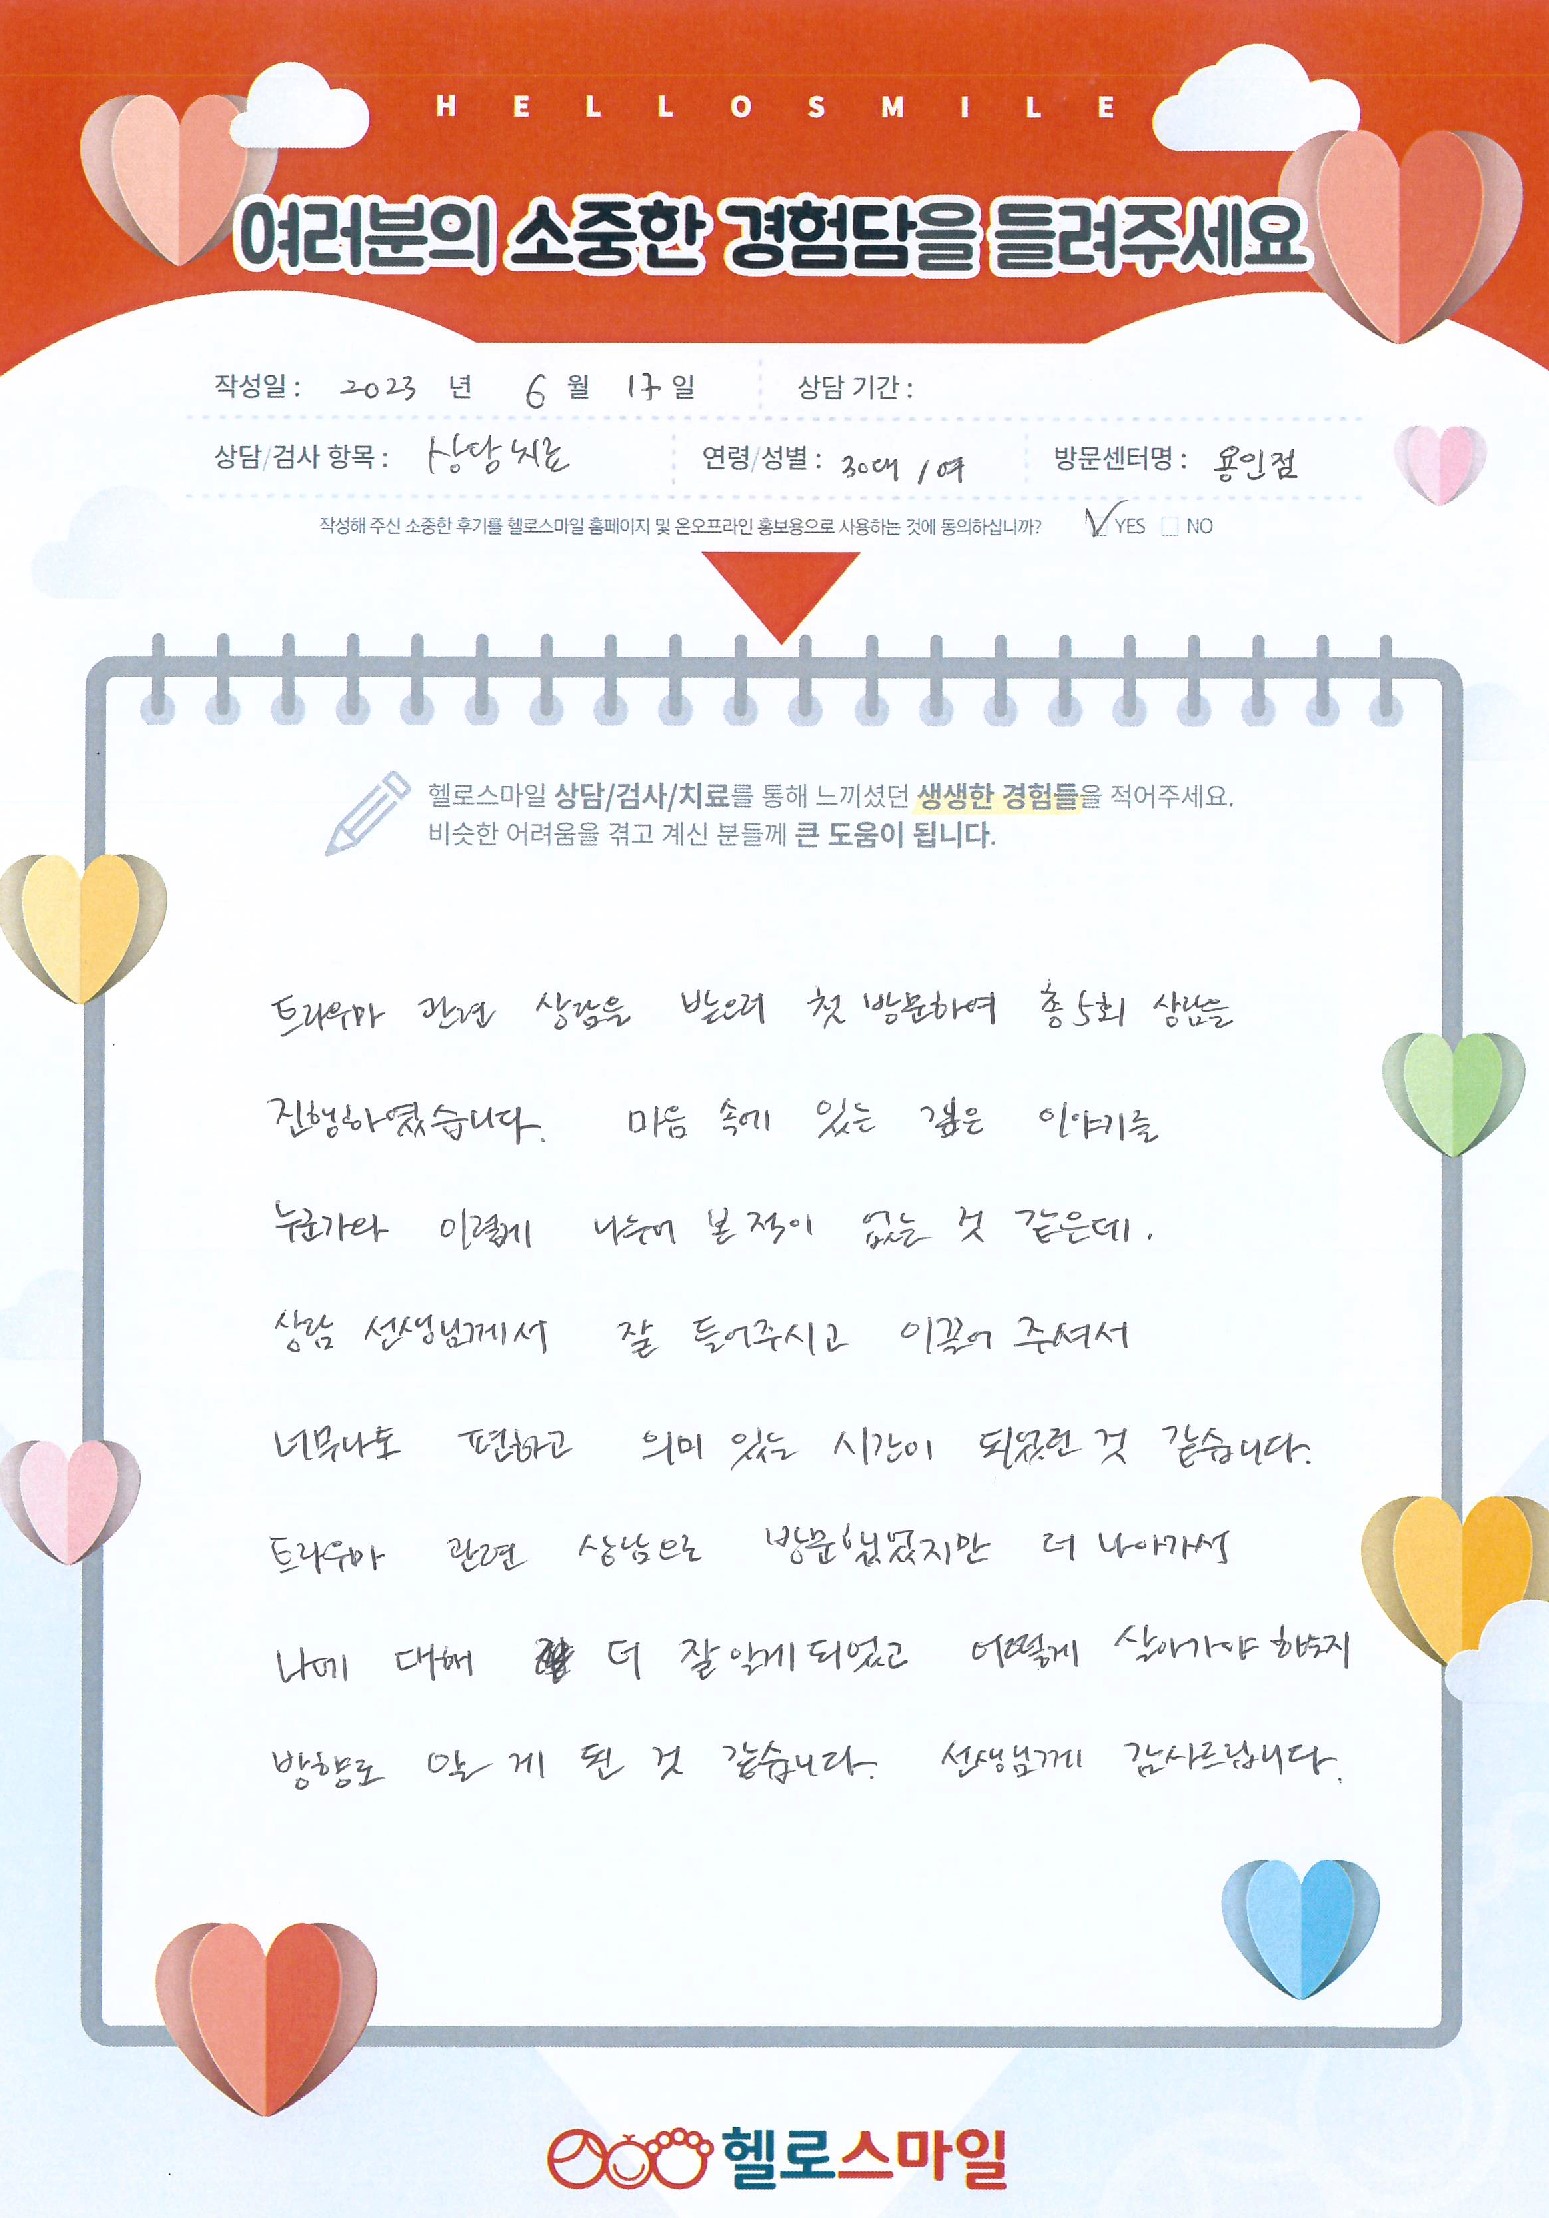 HELLOSMILE
여러분의 소중한 경험담을 들려주세요
작성일 : 2023 년 6 월 17 일 상담 기간 :
상담/검사 항목 : 상담치료 연령/성별 : 30대 / 여 방문센터명 : 용인점
작성해 주신 소중한 후기를 헬로스마일 홈페이지 및 온오프라인 홍보용으로 사용하는 것에 동의하십니까? YES NO
헬로스마일 상담/검사/치료를 통해 느끼셨던 생생한 경험들을 적어주세요.
비슷한 어려움을 겪고 계신 분들께 큰 도움이 됩니다.
트라우마 관련 상담을 받으러 첫 방문하여 총 5회 상담을
진행하였습니다. 마음 속에 있는 깊은 이야기를
누군가와 이렇게 나누어 본 적이 없는 것 같은데.
상담 선생님께서 잘 들어주시고 이끌어 주셔서
너무나도 편하고 의미 있는 시간이 되었던 것 같습니다.
트라우마 관련 상담으로 방문했었지만 더 나아가서
나에 대해 더 잘 알게 되었고 어떻게 살아가야 하는지
방향도 알 게 된 것 같습니다. 선생님께 감사드립니다.
헬로스마일